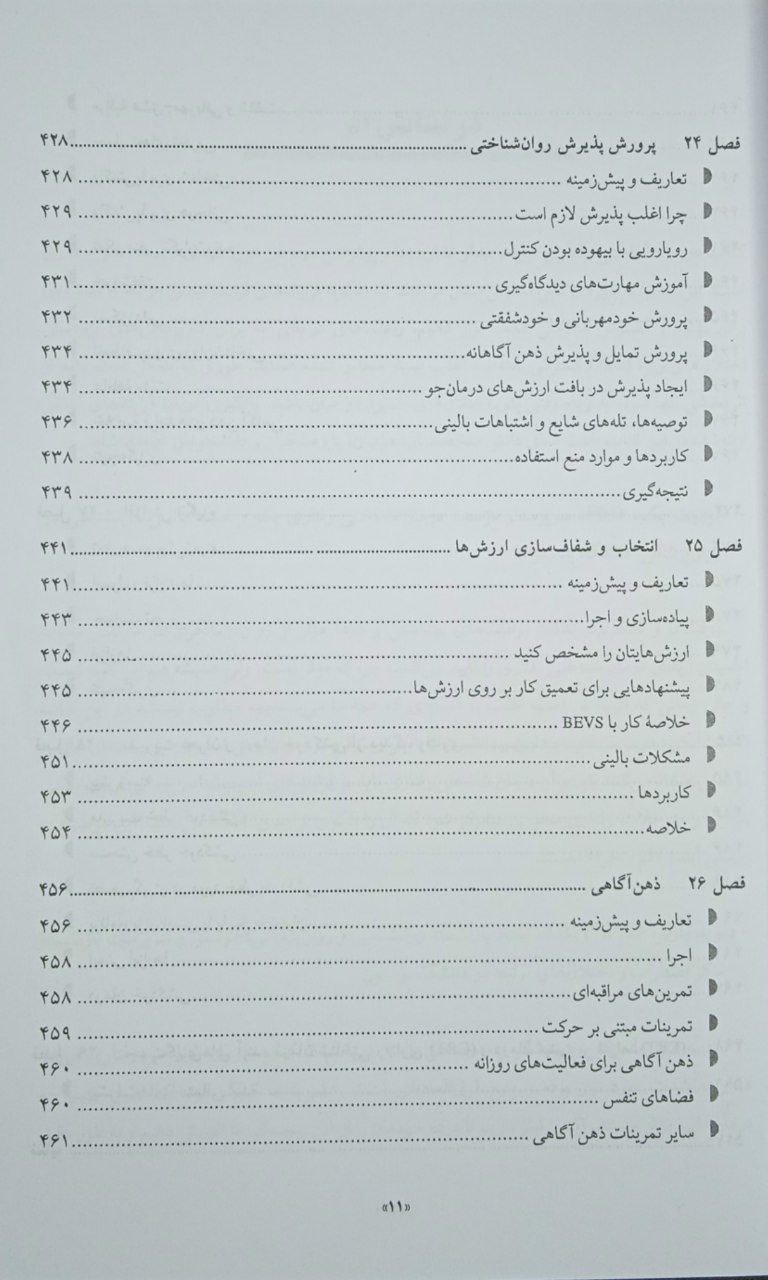 فصل ۲۴ پرورش پذیرش روان‌شناختی ........ ۴۲۸
تعاریف و پیش‌زمینه ........ ۴۲۸
چرا اغلب پذیرش لازم است ........ ۴۲۹
رویارویی با بیهوده بودن کنترل ........ ۴۲۹
آموزش مهارت‌های دیدگاه‌گیری ........ ۴۳۱
پرورش خودمهربانی و خودشفقتی ........ ۴۳۲
پرورش تمایل و پذیرش ذهن آگاهانه ........ ۴۳۴
ایجاد پذیرش در بافت ارزش‌های درمان‌جو ........ ۴۳۴
توصیه‌ها، تله‌های شایع و اشتباهات بالینی ........ ۴۳۶
کاربردها و موارد منع استفاده ........ ۴۳۸
نتیجه‌گیری ........ ۴۳۹
فصل ۲۵ انتخاب و شفاف‌سازی ارزش‌ها ........ ۴۴۱
تعاریف و پیش‌زمینه ........ ۴۴۱
پیاده‌سازی و اجرا ........ ۴۴۳
ارزش‌هایتان را مشخص کنید ........ ۴۴۵
پیشنهادهایی برای تعمیق کار بر روی ارزش‌ها ........ ۴۴۵
خلاصهٔ کار با BEVS ........ ۴۴۶
مشکلات بالینی ........ ۴۵۱
کاربردها ........ ۴۵۳
خلاصه ........ ۴۵۴
فصل ۲۶ ذهن‌آگاهی ........ ۴۵۶
تعاریف و پیش‌زمینه ........ ۴۵۶
اجرا ........ ۴۵۸
تمرین‌های مراقبه‌ای ........ ۴۵۸
تمرینات مبتنی بر حرکت ........ ۴۵۹
ذهن آگاهی برای فعالیت‌های روزانه ........ ۴۶۰
فضاهای تنفس ........ ۴۶۰
سایر تمرینات ذهن آگاهی ........ ۴۶۱
«۱۱»